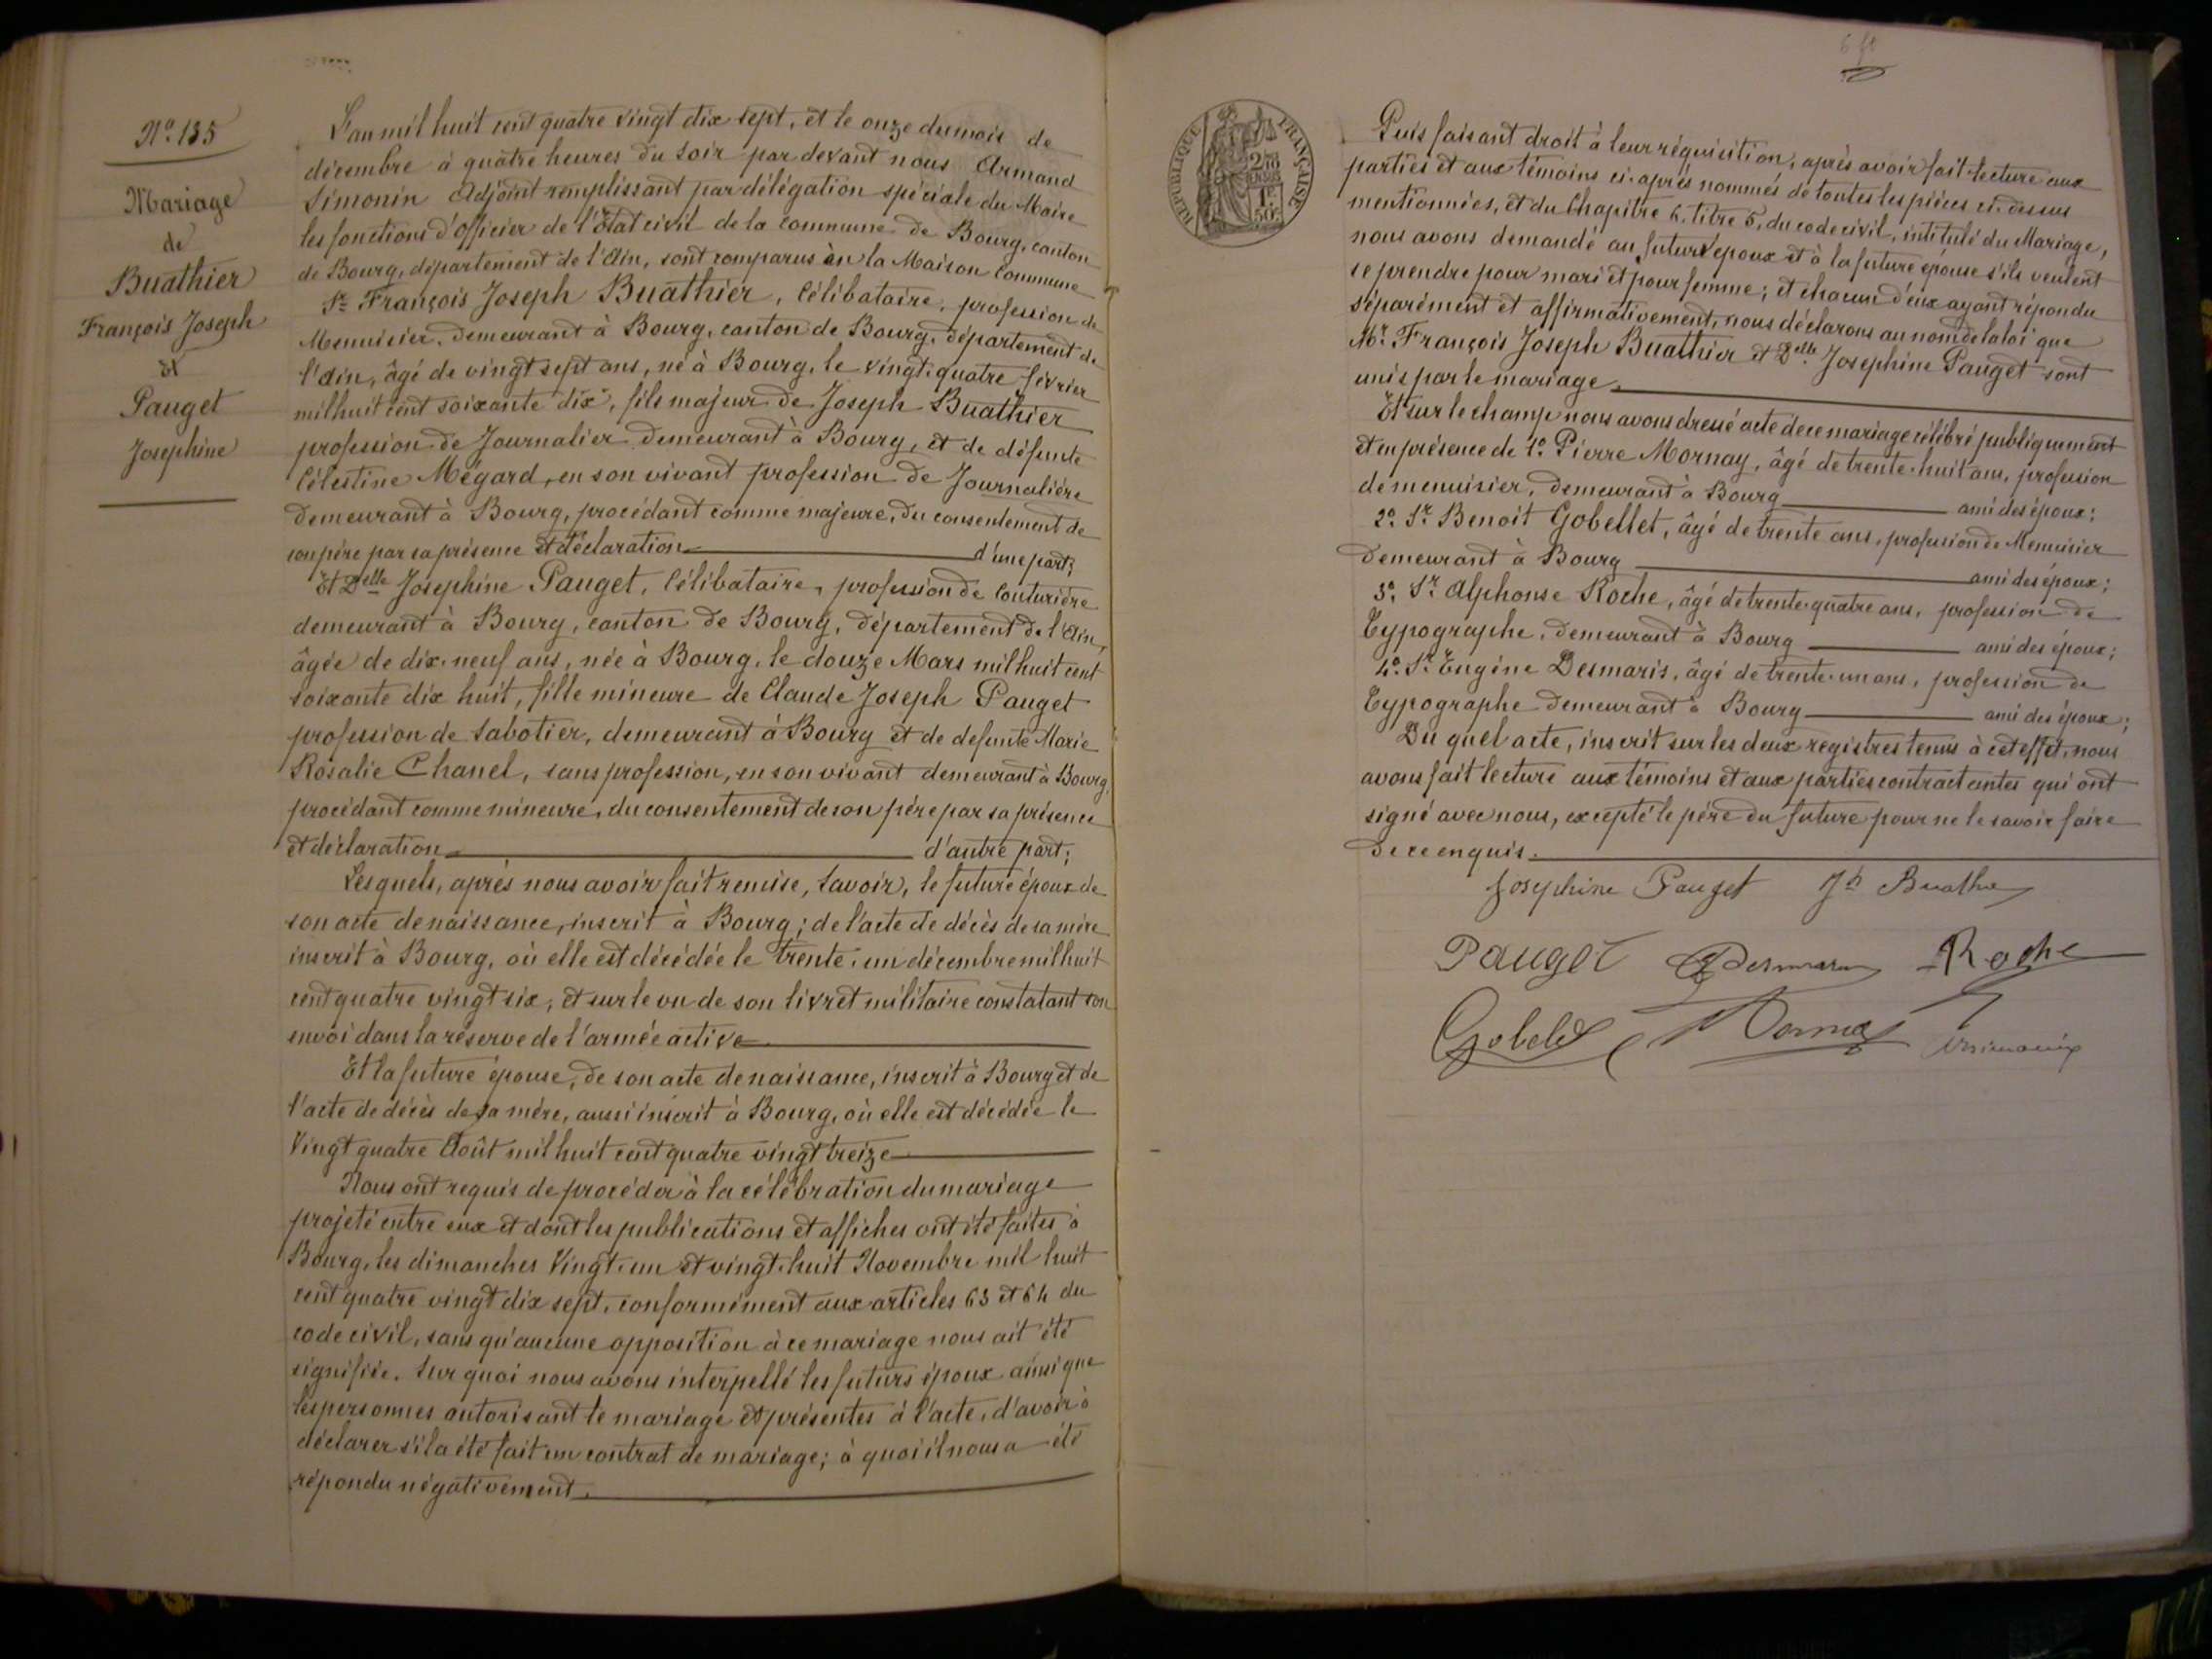 Nº. 135
Mariage
de
Buathier
François Joseph
et
Pauget
Josephine
L'an mil huit cent quatre vingt dix sept, et le onze du mois de
décembre à quatre heures du soir par devant nous Armand
Simonin Adjoint remplissant par délégation spéciale du Maire
les fonctions d'officier de l'Etat civil de la commune de Bourg, canton
de Bourg, département de l'Ain, sont comparus en la Maison Commune
Sr. François Joseph Buathier, Célibataire, profession de
Menuisier, demeurant à Bourg, canton de Bourg, département de
l'Ain, âgé de vingt sept ans, né à Bourg, le vingt-quatre février
mil huit cent soixante dix, fils majeur de Joseph Buathier
profession de Journalier demeurant à Bourg, et de défunte
Célestine Mégard, en son vivant profession de Journalière
demeurant à Bourg, procédant comme majeure, du consentement de
son père par sa présence et déclaration d'une part;
Et Delle Josephine Pauget, Célibataire, profession de Couturière
demeurant à Bourg, canton de Bourg, département de l'Ain,
âgée de dix-neuf ans, née à Bourg, le douze Mars mil huit cent
soixante dix huit, fille mineure de Claude Joseph Pauget
profession de Sabotier, demeurant à Bourg et de defunte Marie
Rosalie Chanel, sans profession, en son vivant demeurant à Bourg,
procédant comme mineure, du consentement de son père par sa présence
et déclaration d'autre part;
Lesquels, après nous avoir fait remise, Savoir, le future époux de
son acte de naissance, inscrit à Bourg; de l'acte de décès de sa mère
inscrit à Bourg, où elle est décédée le trente-un décembre mil huit
cent quatre vingt six, et sur le vu de son livret militaire constatant son
envoi dans la réserve de l'armée active.
Et la future épouse, de son acte de naissance, inscrit à Bourg et de
l'acte de décès de sa mère, aussi inscrit à Bourg, où elle est décédée le
Vingt quatre Août mil huit cent quatre vingt treize
Nous ont requis de procéder à la célébration du mariage
projeté entre eux et dont les publications et affiches ont été faites à
Bourg, les dimanches Vingt-un et vingt-huit Novembre mil huit
cent quatre vingt dix sept, conformément aux articles 63 et 64 du
code civil, sans qu'aucune opposition à ce mariage nous ait été
signifiée. Sur quoi nous avons interpellé les futurs époux ainsi que
les personnes autorisant le mariage et présentes à l'acte, d'avoir à
déclarer s'il a été fait un contrat de mariage; à quoi il nous a été
répondu négativement.
REPUBLIQUE FRANÇAISE
2/10
EN SUS
1F.
50c
Puis faisant droit à leur réquisition, après avoir fait lecture aux
parties et aux témoins ci-après nommés de toutes les pièces ci-dessus
mentionnées, et du Chapitre 6, titre 5, du code civil, intitulé du Mariage,
nous avons demandé au future époux et à la future épouse s'ils veulent
se prendre pour mari et pour femme; et chacun d'eux ayant répondu
séparément et affirmativement, nous déclarons au nom de la loi que
Mr. François Joseph Buathier et Delle Josephine Pauget sont
unis par le mariage.
Et sur le champ nous avons dressé acte de ce mariage célébré publiquement
et en présence de 1º. Pierre Mornay, âgé de trente-huit ans, profession
de menuisier, demeurant à Bourg ami des époux;
2º. Sr. Benoit Gobellet, âgé de trente ans, profession de Menuisier
demeurant à Bourg ami des époux;
3º. Sr. Alphonse Roche, âgé de trente-quatre ans, profession de
Typographe, demeurant à Bourg ami des époux;
4º. Sr. Eugène Desmaris, âgé de trente-un ans, profession de
Typographe demeurant à Bourg ami des époux;
Du quel acte, inscrit sur les deux registres tenus à cet effet, nous
avons fait lecture aux témoins et aux parties contractantes qui ont
signé avec nous, excepté le père du future pour ne le savoir faire
de ce enquis.
Josephine Pauget Jh Buathier
Pauget Desmaris Roche
Gobelet Mornay Simonin